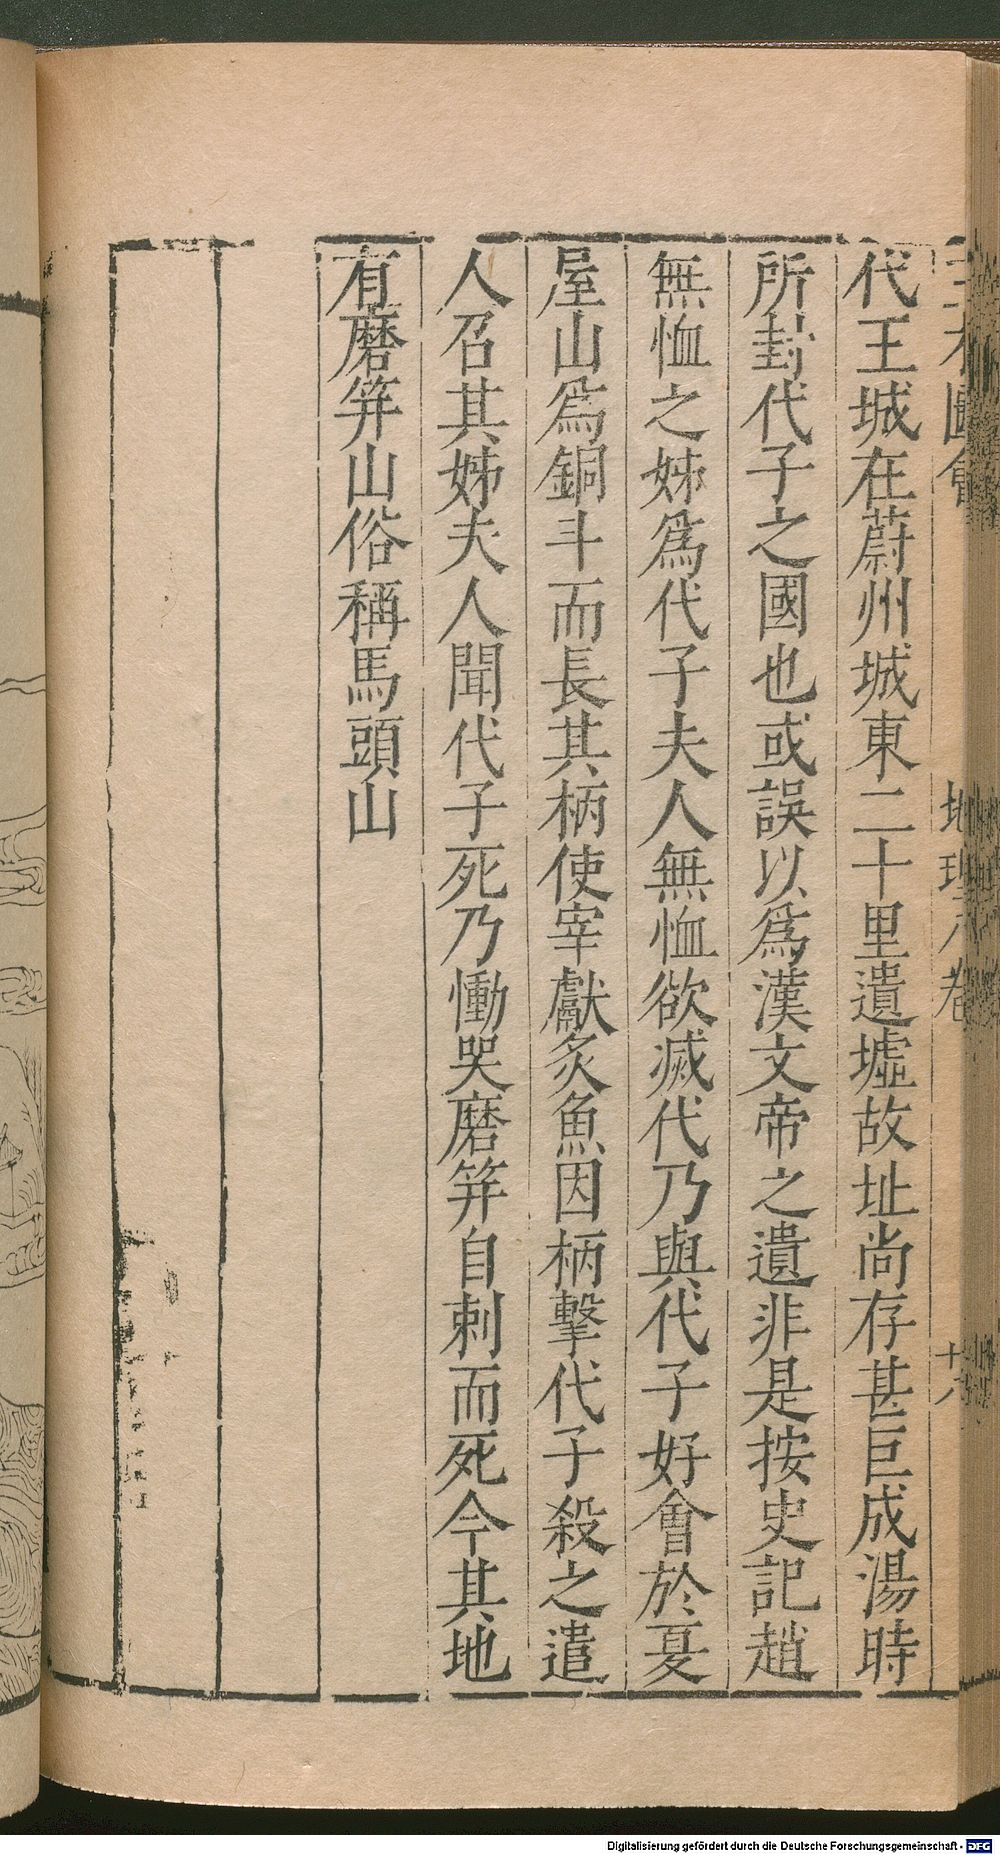 代王城在蔚州城東二十里遺墟故址尚存甚巨成湯時
所封代子之國也或誤以為漢文帝之遺非是按史記趙
無恤之姊為代子夫人無恤欲滅代乃與代子好會於夏
屋山為銅斗而長其柄使宰獻炙魚因柄擊代子殺之遣
人召其姊夫人聞代子死乃慟哭磨笄自刺而死今其地
有磨笄山俗稱馬頭山
地理八卷
十六
Digitalisierung gefördert durch die Deutsche Forschungsgemeinschaft - DFG